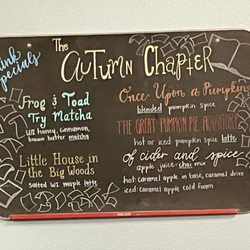 Drink
Specials
The
Autumn Chapter
Frog & Toad
Try Matcha
w/ honey, cinnamon,
brown butter matcha
Little House in
the Big Woods
salted w/ maple latte
Once Upon a Pumpkin
blended pumpkin spice
THE GREAT PUMPKIN PIE ADVENTURE
hot or iced pumpkin spice latte
of cider and spice
apple juice + chai mix
hot: caramel apple in base, caramel drizzle
iced: caramel apple cold foam